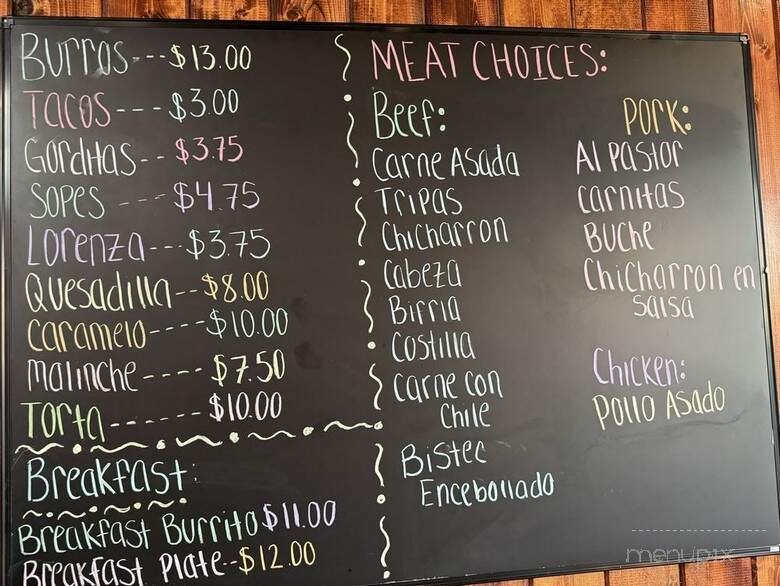 Burros---$13.00
Tacos---$3.00
Gorditas--$3.75
Sopes---$4.75
Lorenza---$3.75
Quesadilla--$8.00
Caramelo----$10.00
Malinche----$7.50
Torta------$10.00
Breakfast:
Breakfast Burrito $11.00
Breakfast Plate--$12.00
MEAT CHOICES:
Beef:
Carne Asada
Tripas
Chicharron
Cabeza
Birria
Costilla
Carne con
Chile
Bistec
Encebollado
Pork:
Al Pastor
Carnitas
Buche
Chicharron en
Salsa
Chicken:
Pollo Asado
menupix